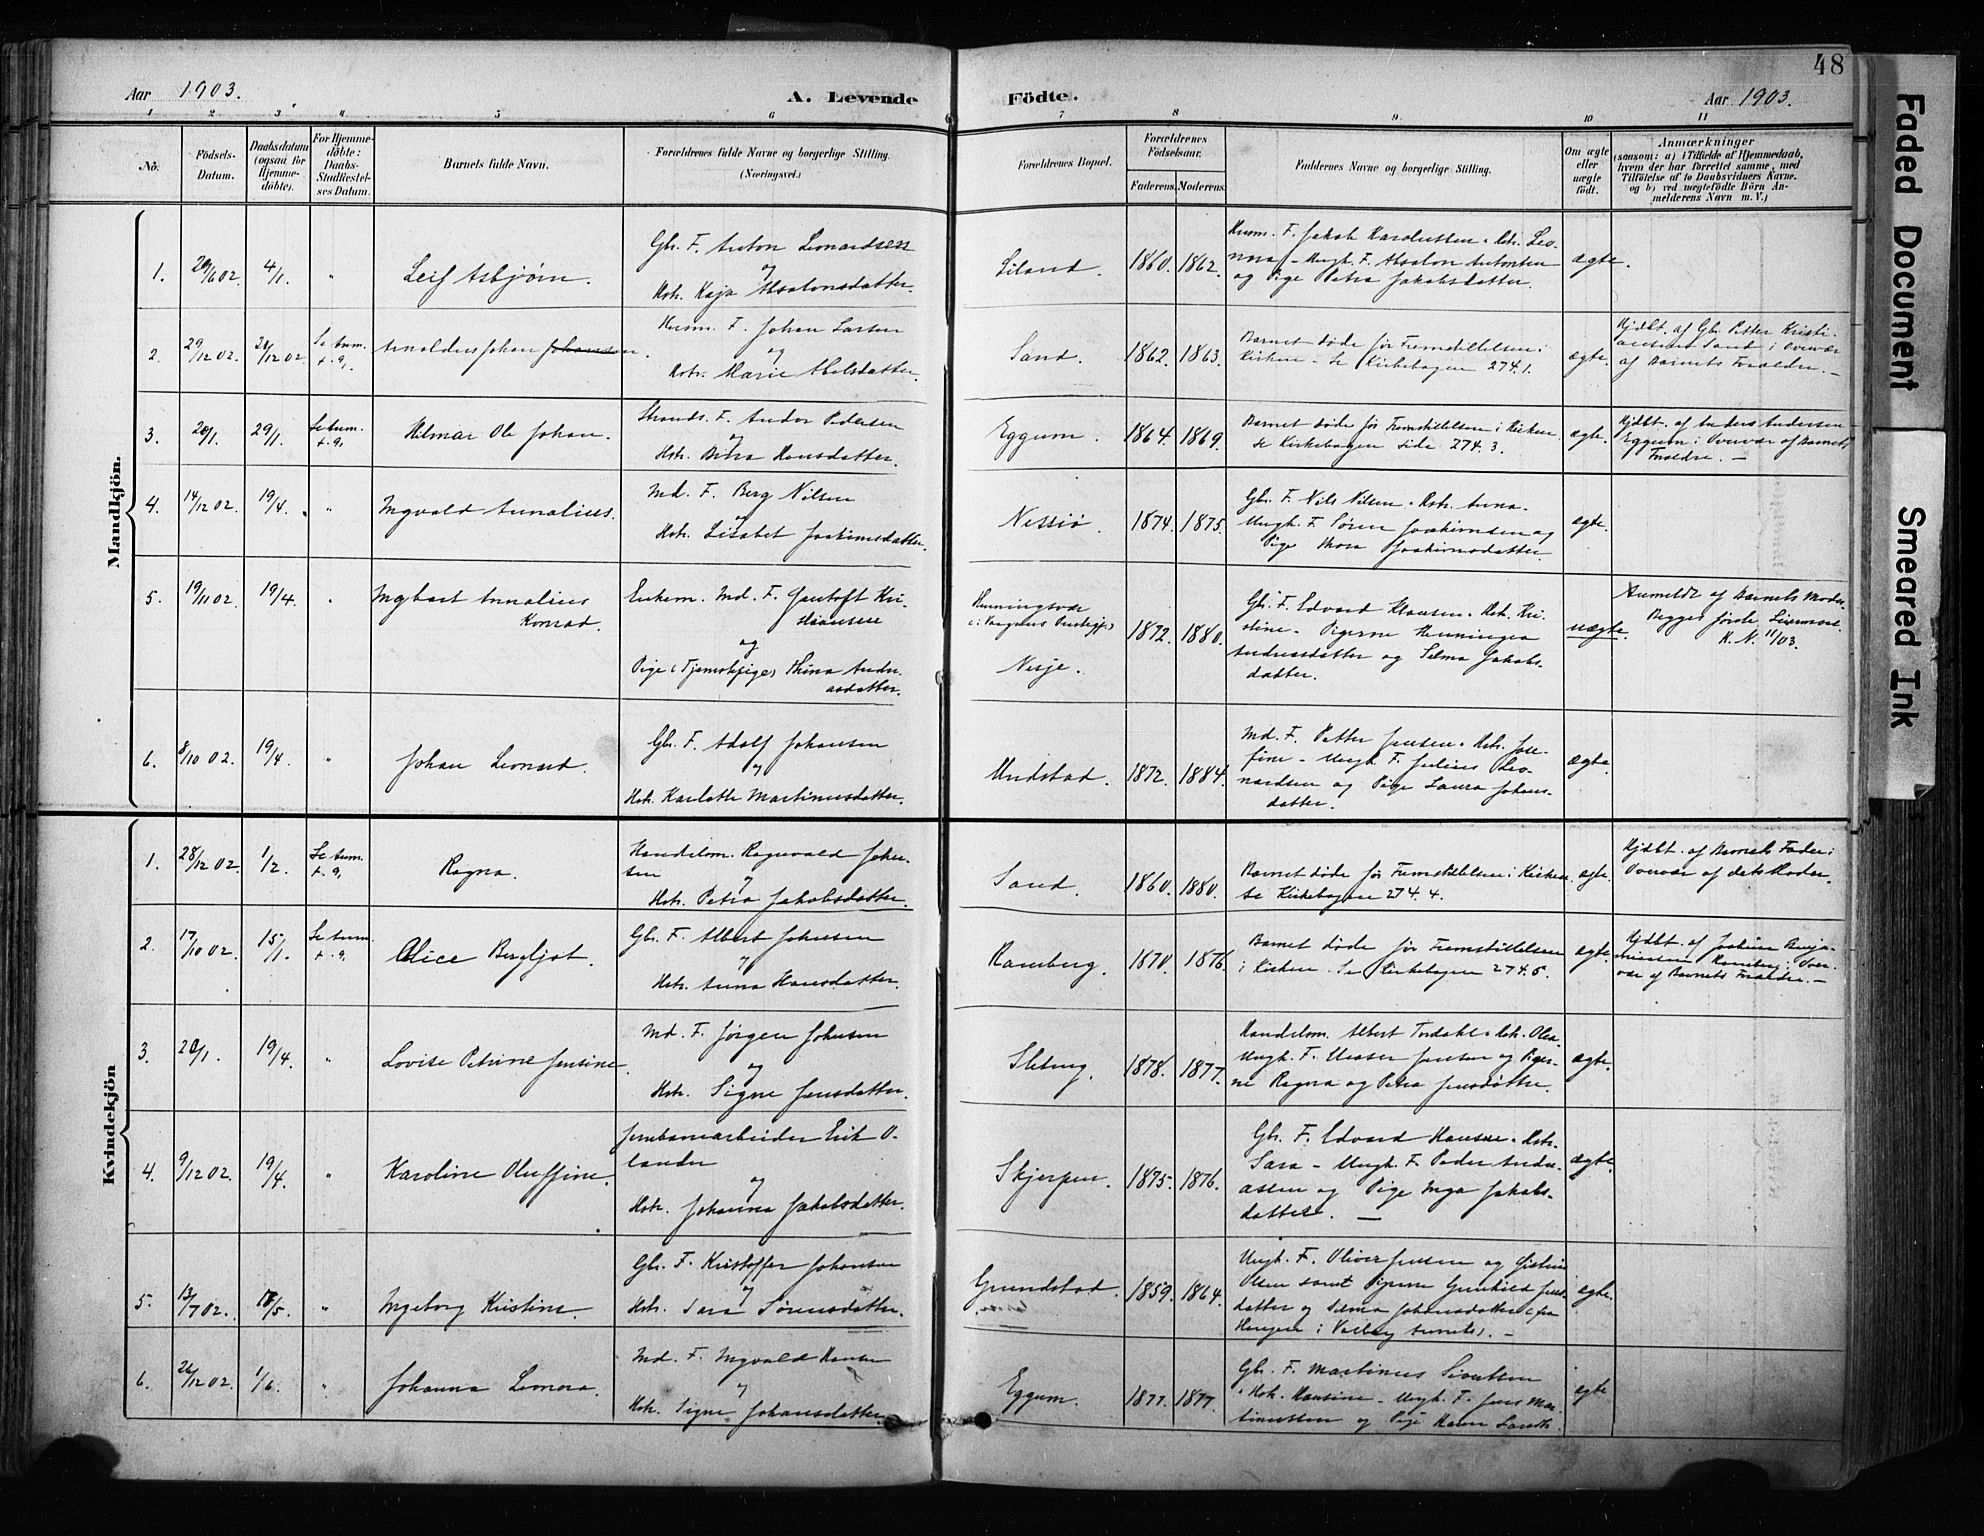 48
Aar 1903.
A. Levende Födte.
Aar 1903.
1 2 3 4 5 6 7 8 9 10 11
No.
Födsels-
Datum.
Daabsdatum
(ogsaa for
Hjemme-
döbte).
For Hjemme-
döbte:
Daabs-
Stadfæstel-
ses Datum.
Barnets fulde Navn.
Forældrenes fulde Navne og borgerlige Stilling.
(Næringsvei.)
Forældrenes Bopæl.
Forældrenes
Födselsaar.
Faderens.
Moderens.
Faddernes Navne og borgerlige Stilling.
Om ægte
eller
uægte
født.
Anmærkninger
(saasom: a) i Tilfælde af Hjemmedaab,
hvem der har forrettet samme, med
Tilföielse af to Daabsvidners Navne.
og b) ved uægtefödte Börn An-
melderens Navn m. V.)
Mandkjön.
1. 29/6 02. 4/1. " Leif Asbjörn.
Gbr. F. Anton Leonardsen
og
Hstr. Kaja Absalonsdatter.
Liland. 1860. 1862.
Husm. F. Jakob Karolussen. Hstr. Leo-
nora - Ungk. F. Absalon Antonsen
og Pige Petra Jakobsdatter.
ægte.
2. 29/12 02. 29/12 02 Se Anm.
+. 9.
Arnoldus Johan Johansen.
Husm. F. Johan Larsen
og
Hstr. Marie Abelsdatter.
Sand. 1862. 1863.
Barnet døde før Fremstillelsen i
Kirken - Se Kirkebogen 274.1.
ægte.
Hjdbt. af Gbr. Petter Kristi-
ansen Sand i Overvær
af Barnets Forældre. -
3. 20/1. 29/1. Se Anm.
+. 9.
Hilmar Ole Johan.
Strands. F. Andor Pedersen
og
Hstr. Dina Hansdatter.
Eggum. 1864. 1869.
Barnet døde før Fremstillelsen i Kirken
se Kirkebogen side 274.3.
ægte.
Hjdbt. af Anders Andersen
Eggum i Overvær af Barnets
Forældre. -
4. 14/12 02 19/4. " Ingvald Annalius.
Md. F. Berg Nilsen
og
Hstr. Lisabet Joakimsdatter.
Nessiø. 1874. 1875.
Gbr. F. Nils Nilsen. Hstr. Anna.
Ungk. F. Søren Joakimsen og
Pige Thora Joakimsdatter.
ægte.
5. 19/11 02. 19/4. " Ingbart Annalius
Konrad.
Enkem. Md. F. Gantoft Kri-
stiansen
og
Pige (Tjenestpige) Stina Andre-
asdatter.
Henningsvær
(i Vaagens Prestegj.)
Nesje.
1872. 1880.
Gbr. F. Edvard Klausen. Hstr. Kri-
stine - Pigerne Henningea
Andreasdatter og Selma Jakobs-
datter.
uægte.
Anmeldt af Barnets Moder
Begges første Leiermaal.
K. N. 11/03.
6. 8/10 02. 19/4. " Johan Leonard.
Gbr. F. Adolf Johansen
og
Hstr. Karlotte Martinusdatter.
Unstad. 1872. 1884.
Md. F. Petter Jensen. Hstr. Jose-
fine - Ungk. F. Julius Leo-
nardsen og Pige Laura Johans-
datter.
ægte
Kvindekjön
1. 28/12 02. 1/2. Se Anm.
+. 9.
Ragna.
Handelsm. Ragnvald Johan-
sen
og
Hstr. Petra Jakobsdatter.
Sand. 1860. 1880.
Barnet døde før Fremstillelsen i Kirken
se Kirkebogen 274.4.
ægte.
Hjdbt. af Barnets Fader i
Overvær af dets Moder.
2. 17/10 02. 15/1. Se Anm.
+. 9.
Alice Bergljot.
Gbr. F. Albert Johansen
og
Hstr. Anna Hansdatter.
Ramberg. 1870. 1876.
Barnet døde før Fremstillelsen
i Kirken. Se Kirkebogen 274.5.
ægte.
Hjdbt. af Joakim Benja-
minsen Ramberg i Over-
vær af Barnets Forældre. -
3. 20/1. 19/4. " Lovise Petrine Jensine.
Md. F. Jørgen Johnsen
og
Hstr. Signe Jensdatter.
1878. 1877.
Handelsm. Albert Tordahl. Hstr. Olea.
Ungk. F. Jensen og Piger-
ne Ragna og Petra Jensdøttre.
ægte.
4. 9/12 02. 19/4. " Karoline Oluffine.
Jernbanearbeider Erik O-
lander
og
Hstr. Johanna Jakobsdatter.
Skjerpen. 1875. 1876.
Gbr. F. Edvard Hansen. Hstr.
Sara - Ungk. F. Peder Andre-
assen og Pige Inga Jakobs-
datter. -
ægte.
5. 13/7 02. 17/5. " Ingeborg Kristine.
Gbr. F. Kristoffer Johansen
og
Hstr. Sara Sørensdatter.
Grundstad. 1859. 1864.
Ungk. F. Oliver Jensen og
Olsen samt Pigerne Gunhild Jens-
datter og Selma Johansdatter (fra
Haugen i Valberg Annets). -
ægte.
6. 26/12 02. 1/6. " Johanna Leonora.
Md. F. Ingvald Hansen
og
Hstr. Signe Johansdatter.
Eggum. 1877. 1877.
Gbr. F. Martinus Sivertsen
. Hstr. Hansine - Ungk. F. Jens Mar-
tinussen og Pige
ægte
Faded Document
Smeared Ink